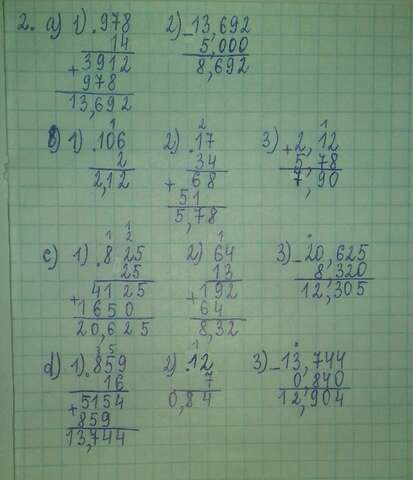 2. a) 1) .978 2) _13,692
14 5,000
+3912 8,692
978
13,692
1
b) 1) .106 2) .17 3) +2,12
2 34 5,78
2,12 +68 7,90
51
5,78
c) 1) .8 25 2) 64 3) _20,625
25 13 8,320
+4125 +192 12,305
1650 64
20,625 8,32
d) 1) .859 2) .12 3) _13,744
16 7 0,840
+5154 0,84 12,904
859
13,744